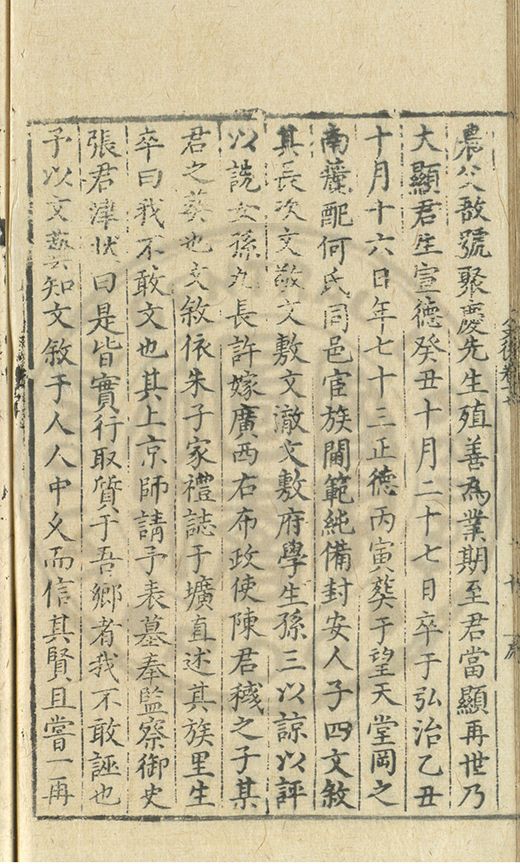 農父敔號聚慶先生殖善為業期至君當顯再世乃
大顯君生宣德癸丑十月二十七日卒于弘治乙丑
十月十六日年七十三正德丙寅葬于望天堂岡之
南麓配何氏同邑宦族閫範純備封安人子四文敘
其長次文敬文敷文澈文敷府學生孫三以諒以評
以詵女孫九長許嫁廣西右布政使陳君穢之子某
君之葬也文敘依朱子家禮誌于壙直述其族里生
卒曰我不敢文也其上京師請予表墓奉監察御史
張君津狀曰是皆實行取質于吾鄉者我不敢誣也
予以文藝知文敘于人人中久而信其賢且嘗一再